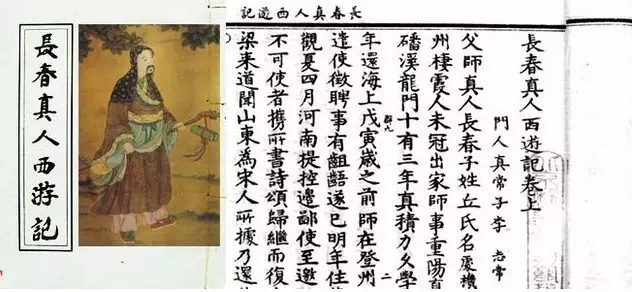 長春真人西游記
長春真人西遊記
長春真人西遊記卷上
門人真常子李 志常
父師真人長春子姓丘氏名處機
州棲霞人未冠出家師事重陽真
磻溪龍門十有三年真積力久學
年還海上戊寅歲之前師在登州
二
遣使徵聘事有齟齬遂已明年住
觀夏四月河南提控邊鄙使至邀
不可使者攜所書詩頌歸繼而復
梁來道聞山東為宋人所據乃還